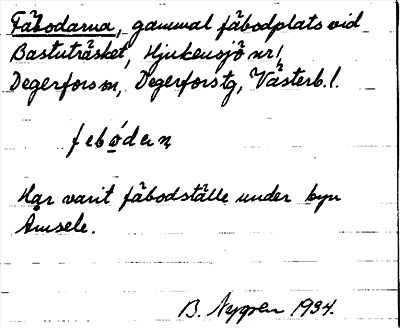 Fäbodarna, gammal fäbodplats vid
Bastuträsket, Hjukensjö nr 1,
Degerfors sn, Degerfors tg, Västerb. l.
febo̲'den
Har varit fäbodställe under byn
Amsele.
B. Nygren 1934.